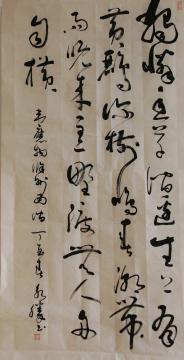 独怜幽草涧边生上有
黄鹂深树鸣春潮带
雨晚来急野渡无人舟
自横
韦应物滁州西涧 丁酉春